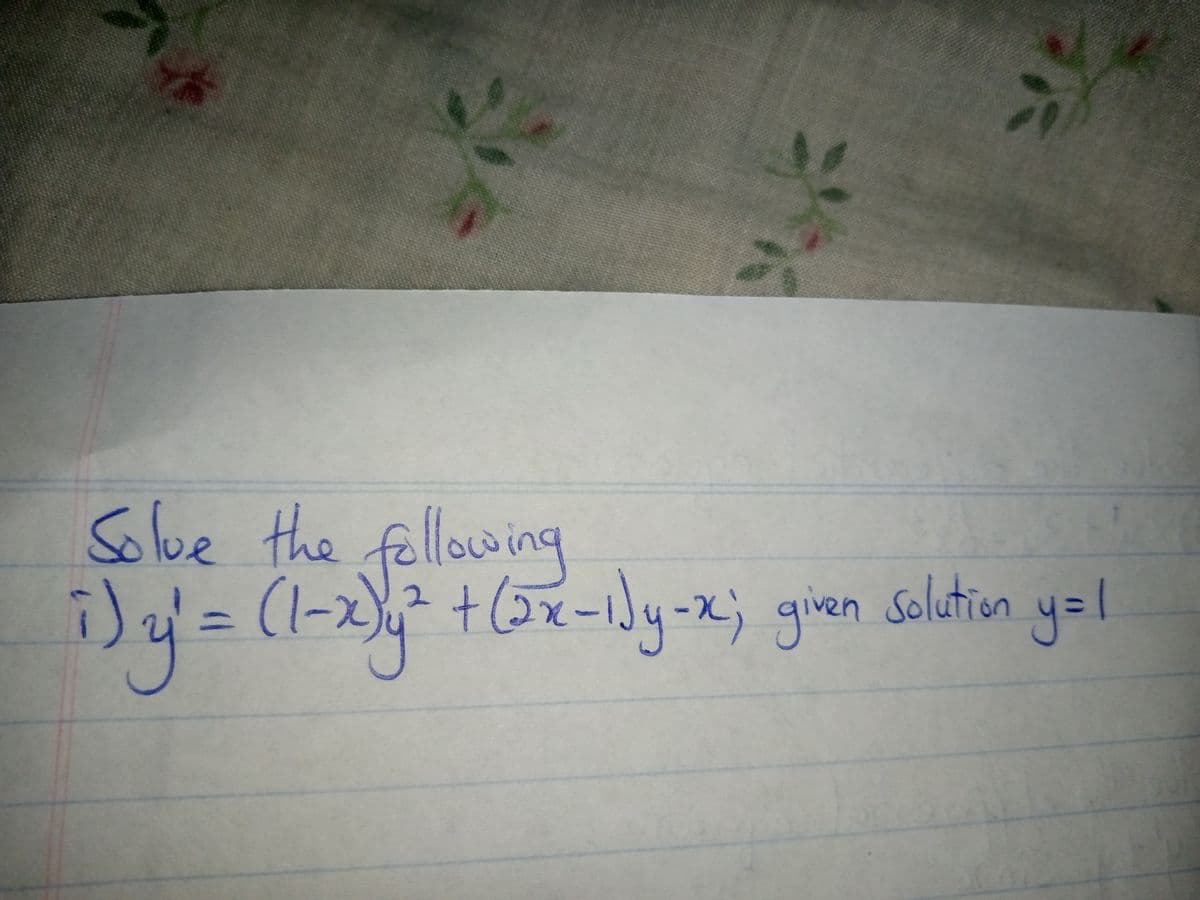 Solve the following
i) y' = (1-x)y² + (2x-1)y-x; given solution y=1